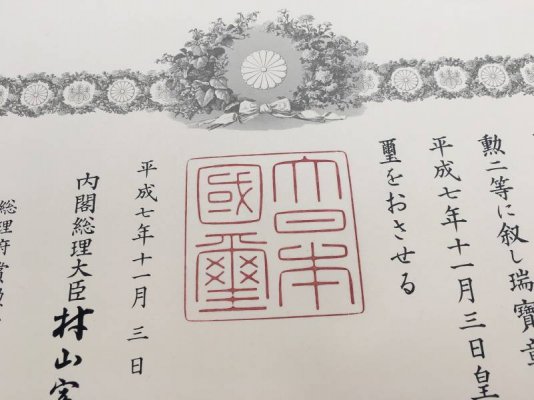 勲二等に叙し瑞寶章
平成七年十一月三日皇
璽をおさせる
大日本
國璽
平成七年十一月三日
内閣総理大臣 村山富
総理府賞勲